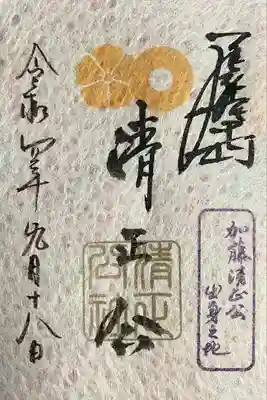 清正公
清正
公社
加藤清正公
出身之地
令和四年九月十八日